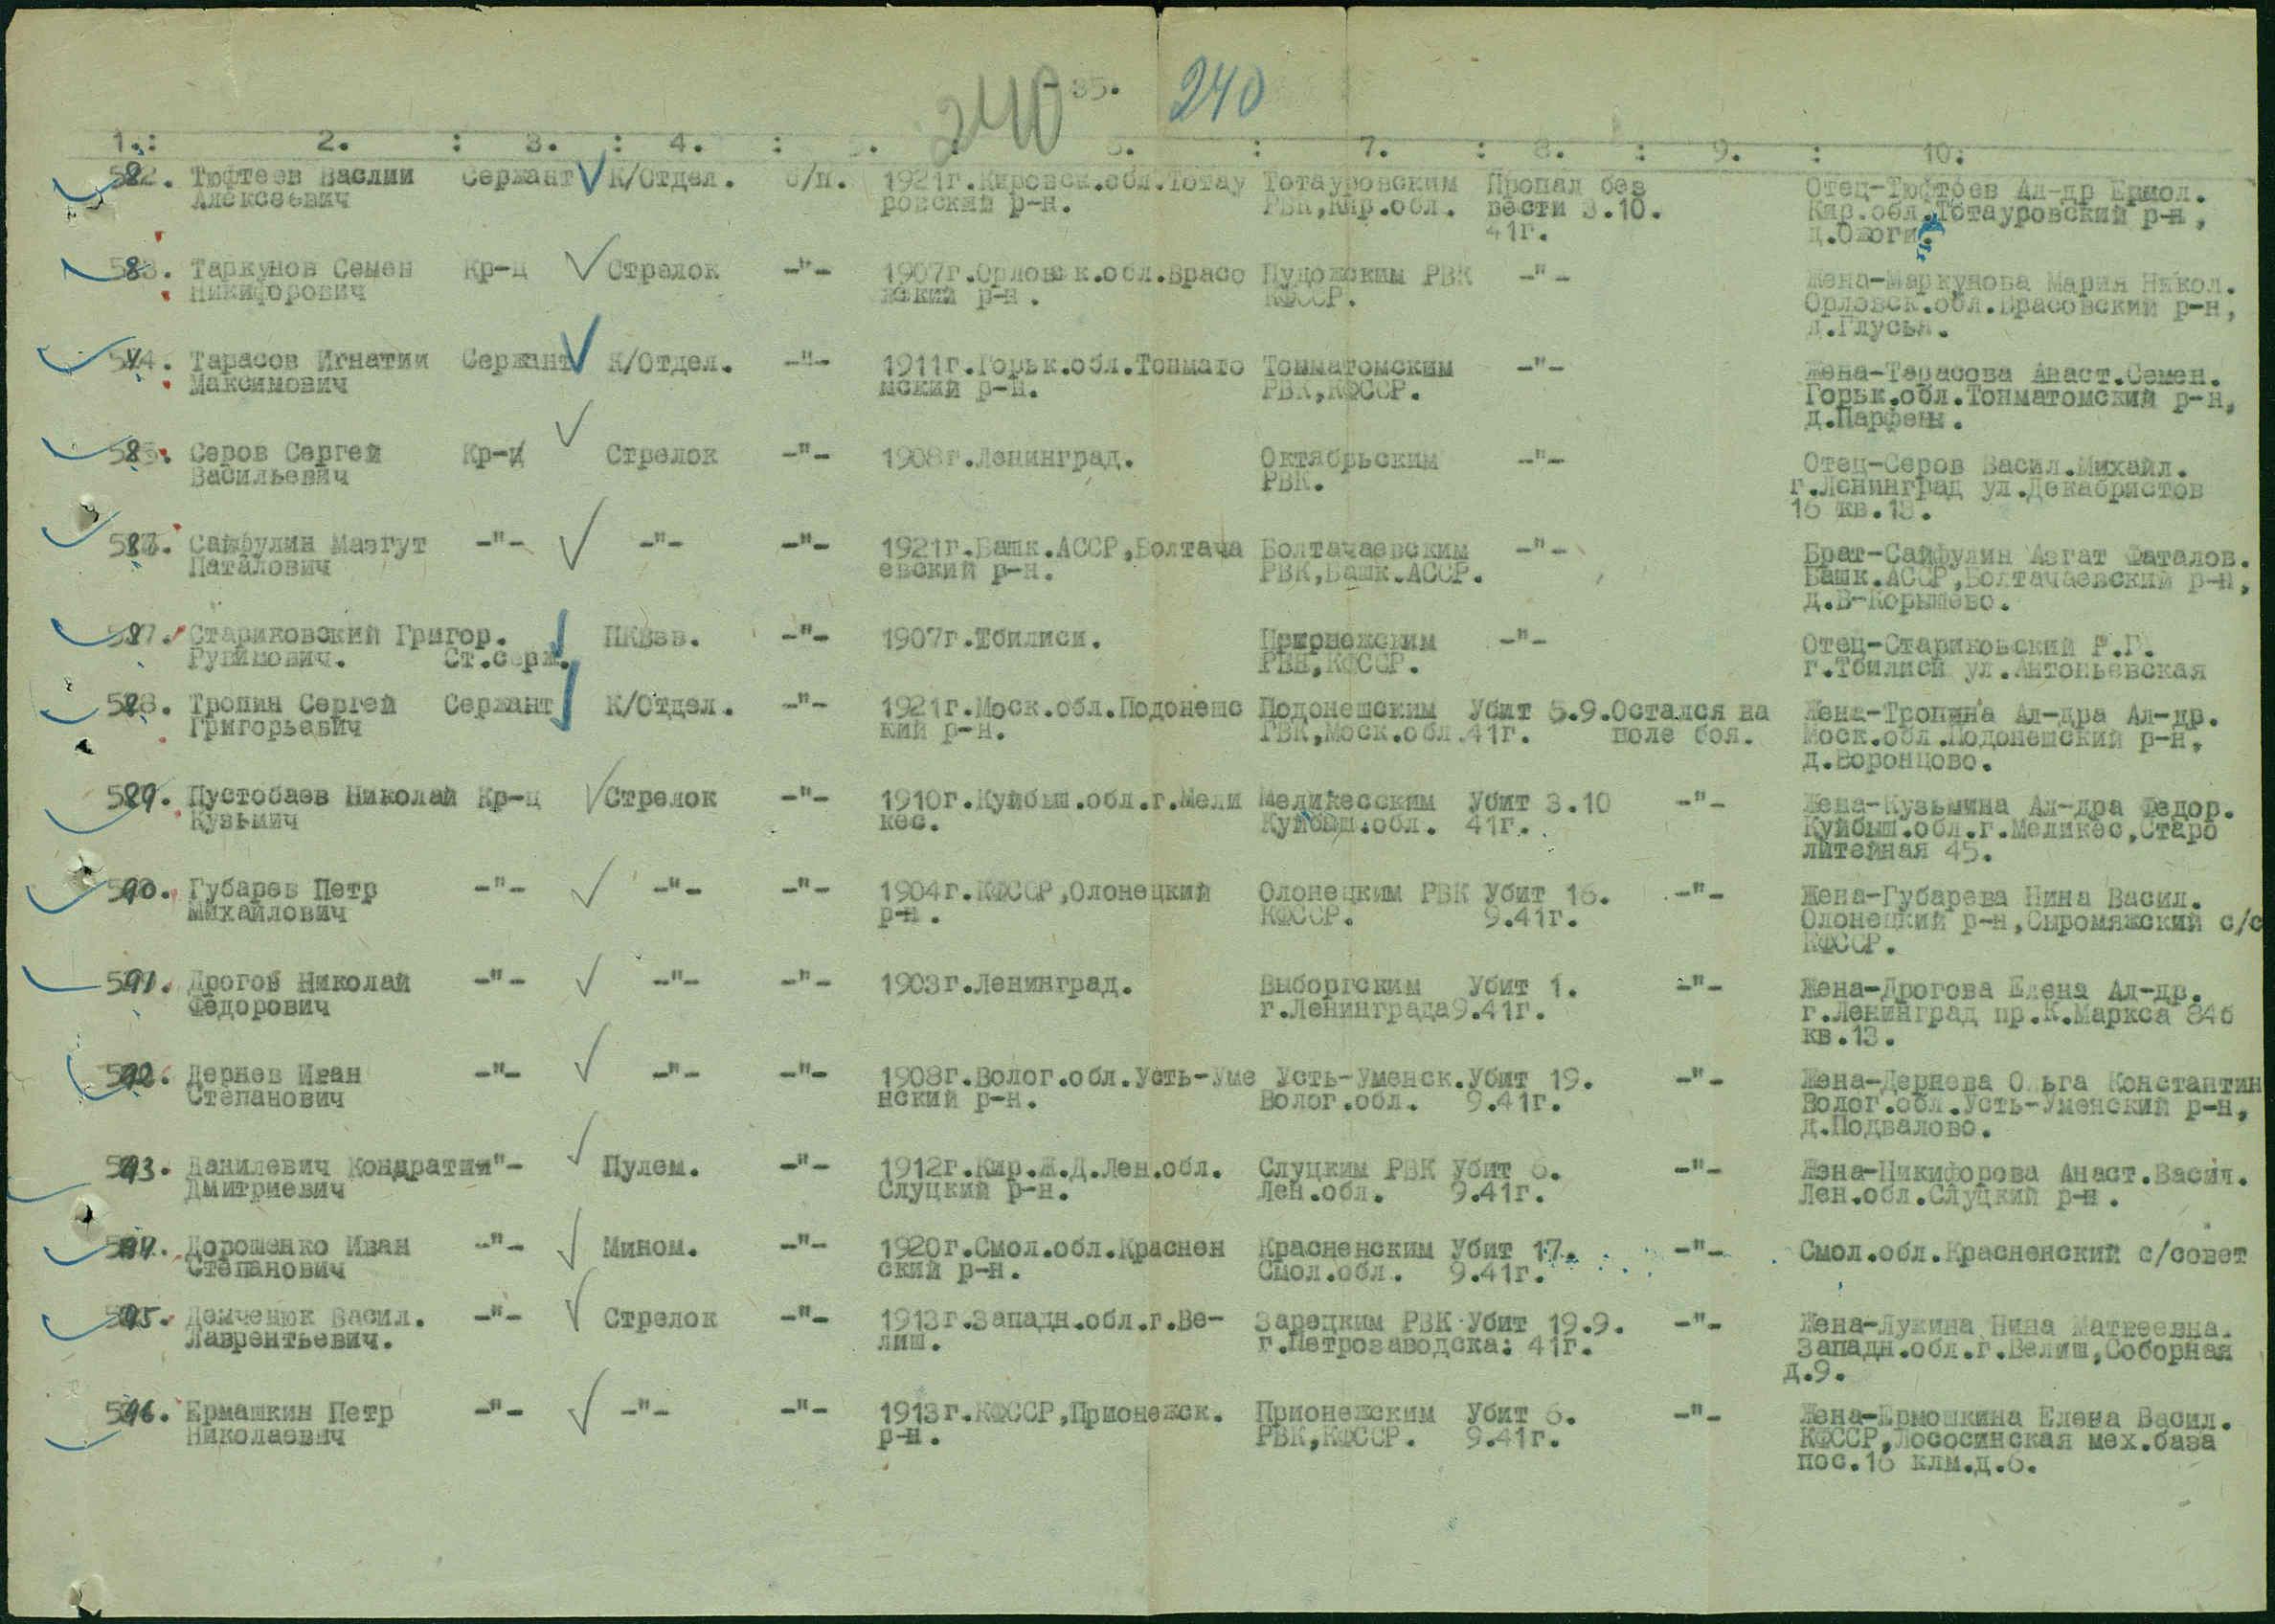 35.
240 240
1.: 2. : 3. : 4. : 5. : 6. : 7. : 8. : 9. : 10:
582. Тюфтеев Васлии Сержант К/Отдел. б/п. 1921г.Кировск.обл.Тотау Тотауровским Пропал без Отец-Тюфтеев Ал-др Ермол.
Алексеевич ровский р-н. РВК,Кир.обл. вести 3.10. Кир.обл.Тотауровский р-н,
41г. д.Ожоги.
583. Таркунов Семен Кр-ц Стрелок -"- 1907г.Орловск.обл.Брасо Пудожским РВК -"- Жена-Маркунова Мария Никол.
Никифорович вский р-н. КФССР. Орловск.обл.Брасовский р-н,
д.Глусья.
584. Тарасов Игнатии Сержант К/Отдел. -"- 1911г.Горьк.обл.Тонмато Тонматомским -"- Жена-Тарасова Анаст.Семен.
Максимович мский р-н. РВК,КФССР. Горьк.обл.Тонматомский р-н,
д.Парфены.
585. Серов Сергей Кр-ц Стрелок -"- 1908г.Ленинград. Октябрьским -"- Отец-Серов Васил.Михайл.
Васильевич РВК. г.Ленинград ул.Декабристов
16 кв.13.
586. Сайфулин Мазгут -"- -"- -"- 1921г.Башк.АССР,Болтача Болтачаевским -"- Брат-Сайфулин Азгат Фаталов.
Паталович евский р-н. РВК,Башк.АССР. Башк.АССР,Болтачаевский р-н,
д.В-Корышево.
587. Стариковский Григор. ПКВзв. -"- 1907г.Тбилиси. Прионежским -"- Отец-Стариковский Р.Г.
Рувимович. Ст.серж. РВК,КФССР. г.Тбилиси ул.Антоньевская
588. Тропин Сергей Сержант К/Отдел. -"- 1921г.Моск.обл.Подонешс Подонешским Убит 5.9.Остался на Жена-Тропина Ал-дра Ал-др.
Григорьевич кий р-н. РВК,Моск.обл.41г. поле боя. Моск.обл.Подонешский р-н,
д.Воронцово.
589. Пустобаев Николай Кр-ц Стрелок -"- 1910г.Куйбыш.обл.г.Мели Меликесским Убит 3.10 -"- Жена-Кузьмина Ал-дра Федор.
Кузьмич кес. Куйбыш.обл. 41г. Куйбыш.обл.г.Меликес,Старо
литейная 45.
590. Губарев Петр -"- -"- -"- 1904г.КФССР,Олонецкий Олонецким РВК Убит 16. -"- Жена-Губарева Нина Васил.
Михайлович р-н. КФССР. 9.41г. Олонецкий р-н,Сыромяжский с/с
КФССР.
591. Дрогов Николай -"- -"- -"- 1903г.Ленинград. Выборгским Убит 1. -"- Жена-Дрогова Елена Ал-др.
Федорович г.Ленинграда9.41г. г.Ленинград пр.К.Маркса 84б
кв.13.
592. Дернев Иван -"- -"- -"- 1908г.Волог.обл.Усть-Уме Усть-Уменск.Убит 19. -"- Жена-Дернева Ольга Константин
Степанович нский р-н. Волог.обл. 9.41г. Волог.обл.Усть-Уменский р-н,
д.Подвалово.
593. Данилевич Кондратии"- Пулем. -"- 1912г.Кир.Ж.Д.Лен.обл. Слуцким РВК Убит 6. -"- Жэна-Никифорова Анаст.Васил.
Дмитриевич Слуцкий р-н. Лен.обл. 9.41г. Лен.обл.Слуцкий р-н.
594. Дорошенко Иван -"- Мином. -"- 1920г.Смол.обл.Краснен Красненским Убит 17. -"- Смол.обл.Красненский с/совет
Степанович ский р-н. Смол.обл. 9.41г.
595. Демченюк Васил. -"- Стрелок -"- 1913г.Западн.обл.г.Ве- Зарецким РВК Убит 19.9. -"- Жена-Лужина Нина Матвеевна.
Лаврентьевич. лиш. г.Петрозаводска: 41г. Западн.обл.г.Велиш,Соборная
д.9.
596. Ермашкин Петр -"- -"- -"- 1913г.КФССР,Прионежск. Прионежским Убит 6. -"- Жена-Ермошкина Елена Васил.
Николаевич р-н. РВК,КФССР. 9.41г. КФССР,Лососинская мех.база
пос.16 клм.д.6.